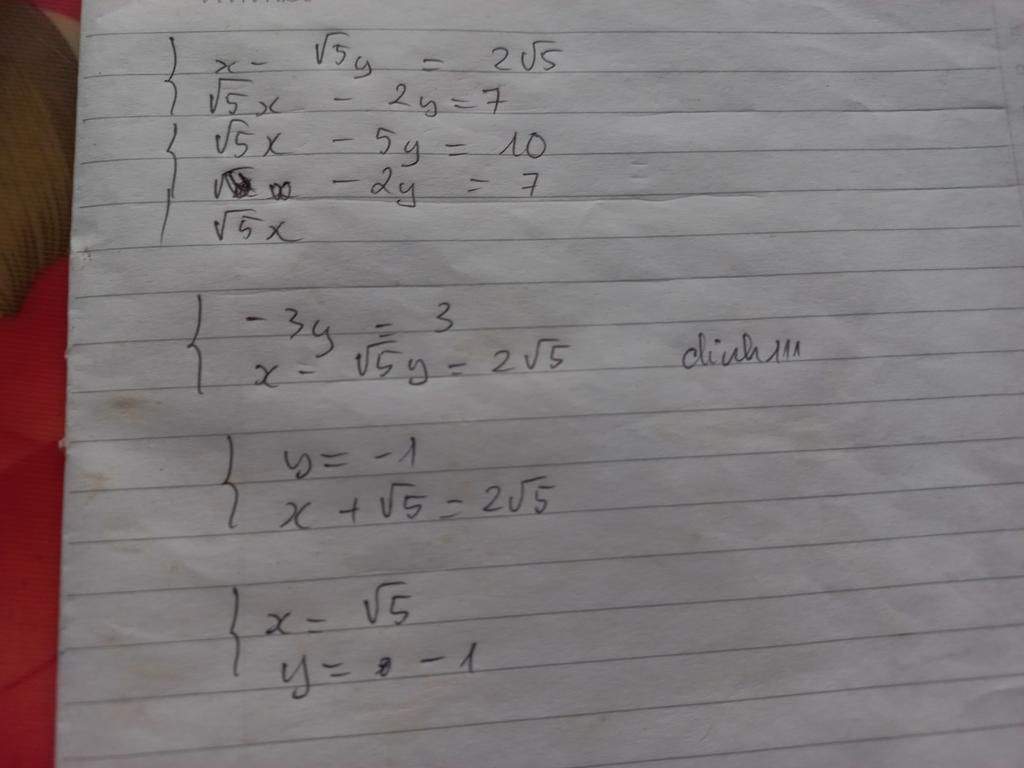 x - √5y = 2√5
√5x - 2y = 7
√5x - 5y = 10
- 2y = 7
√5x
- 3y = 3
x - √5y = 2√5
y = -1
x + √5 = 2√5
x = √5
y = -1